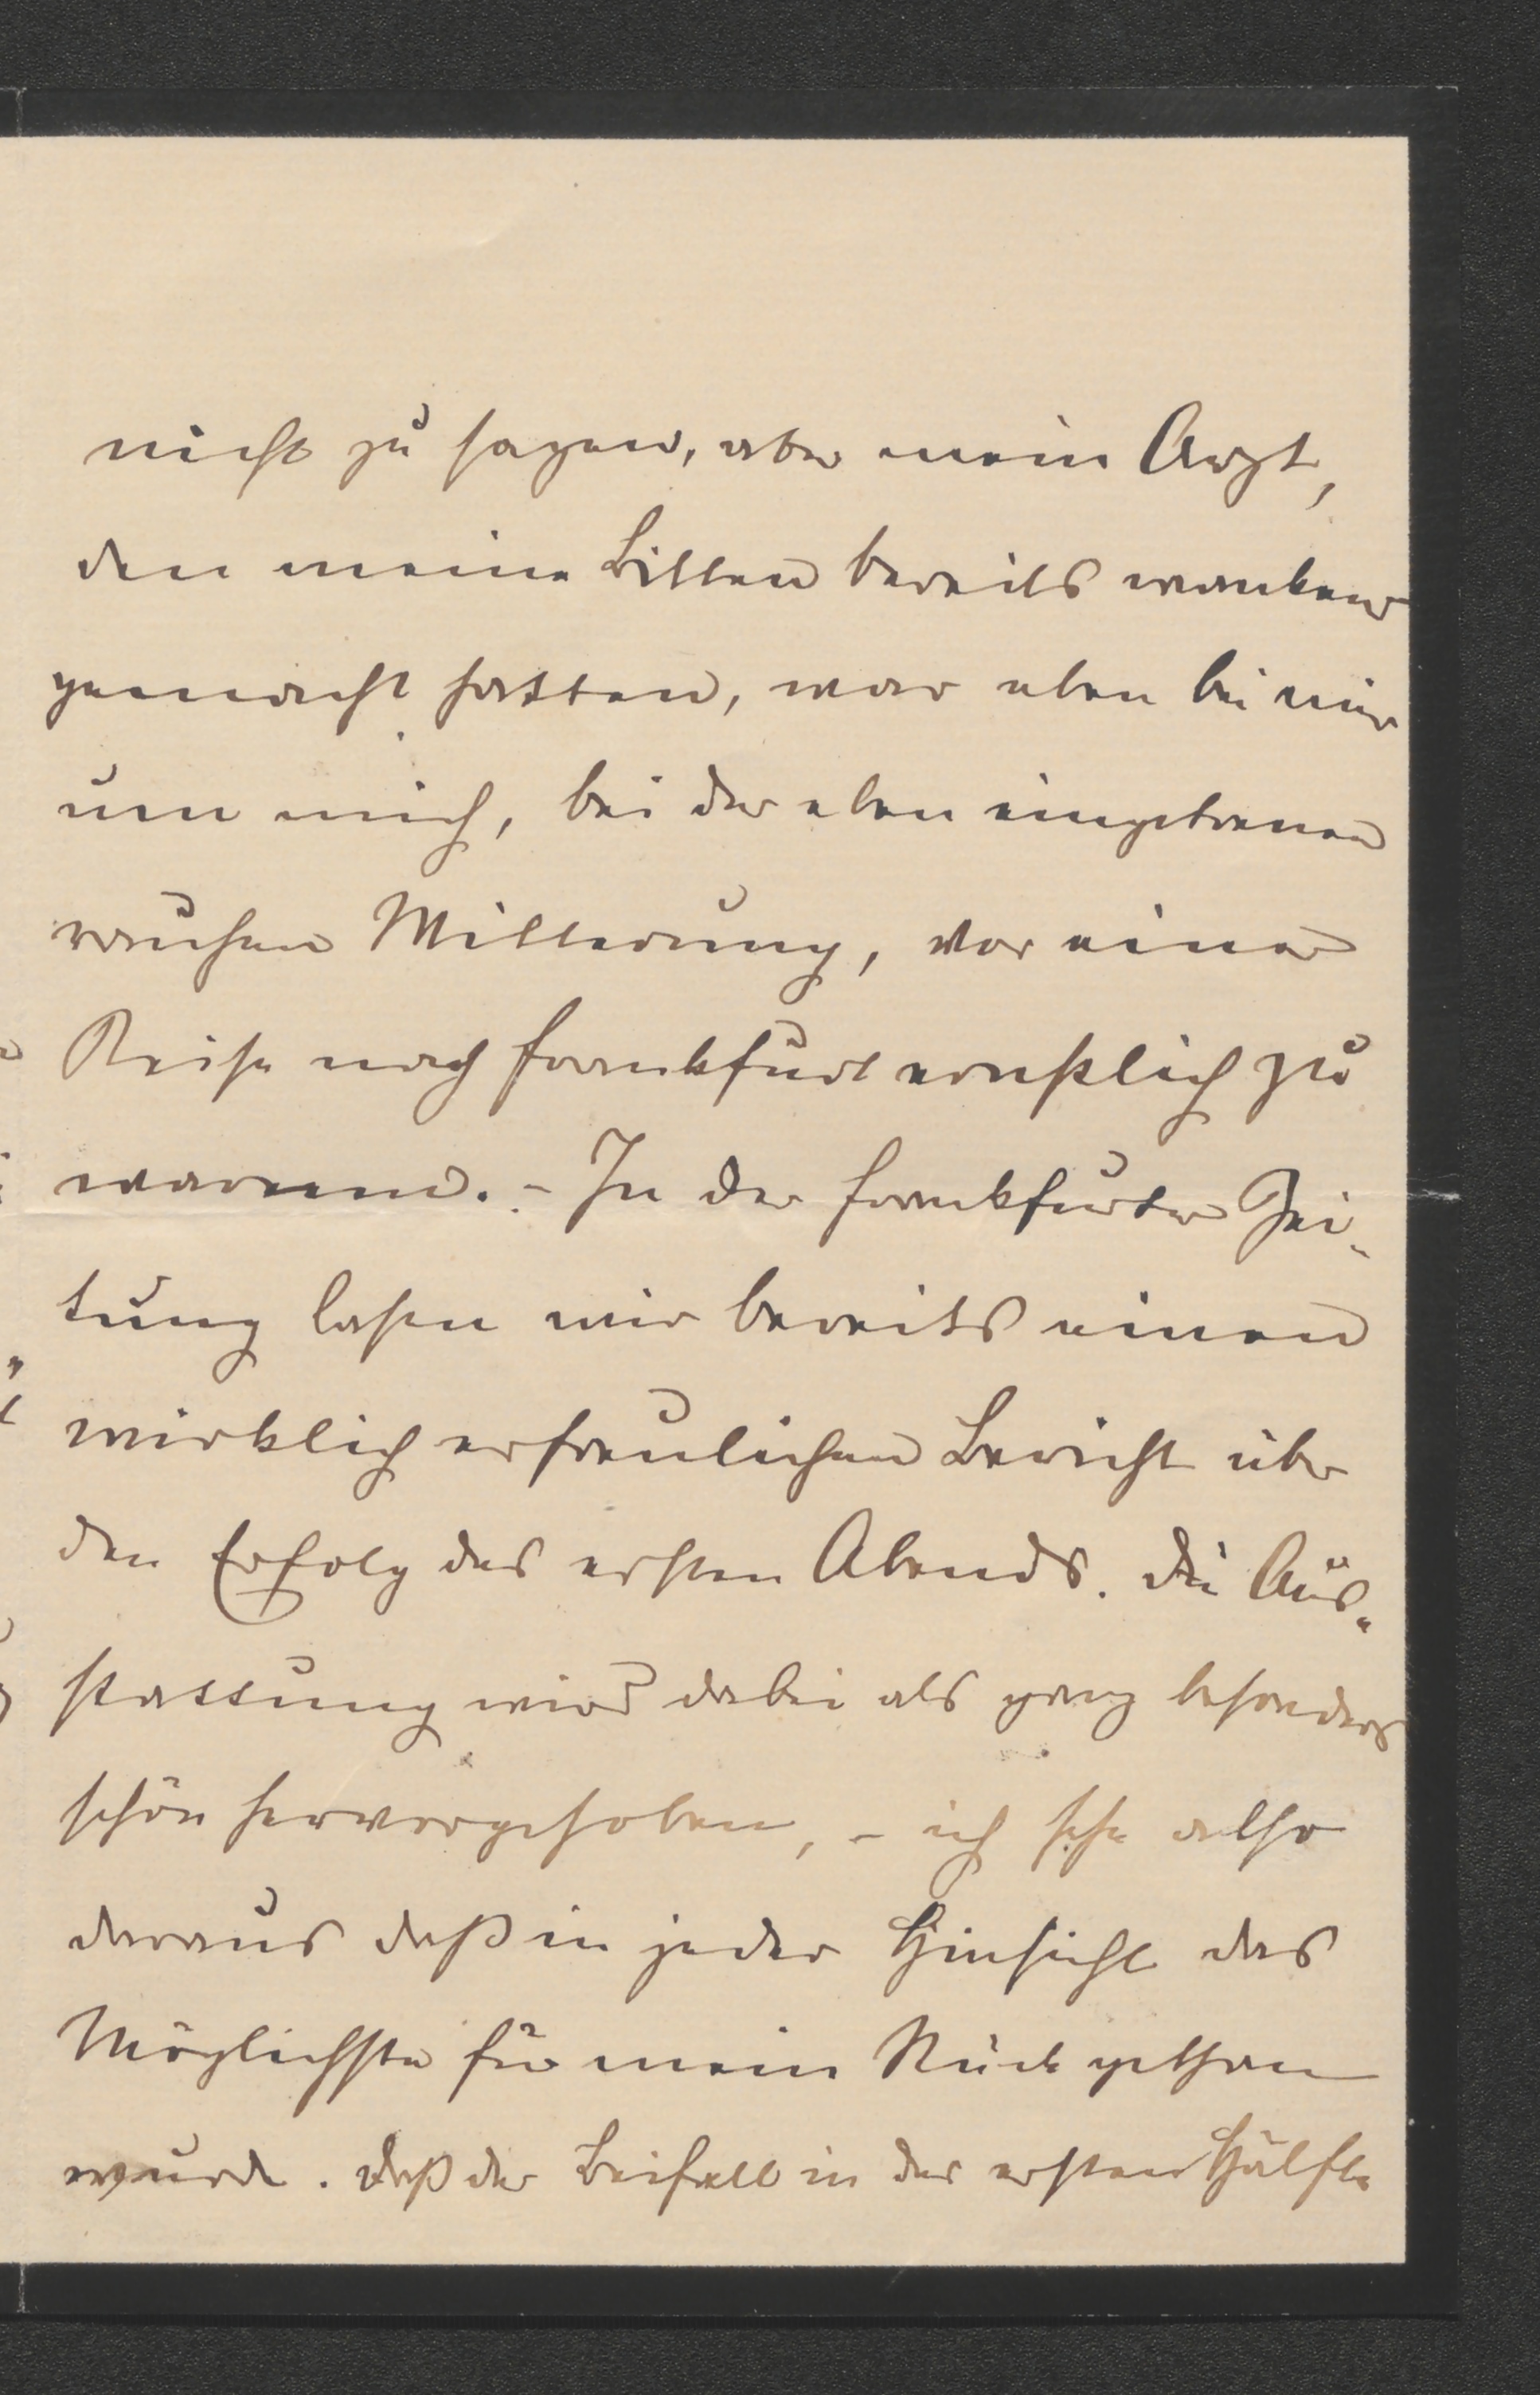 nicht zu sagen, aber mein Arzt,
den meine Bitten bereits wanken
gemacht hatten, war eben bei mir
um mich, bei der eben eingetrenen
rauhen Witterung, vor einer
Reise nach Frankfurt ernstlich zu
warnen. – In der Frankfurter Zei-
tung lasen wir bereits einen
wirklich erfreulichen Bericht über
den Erfolg des ersten Abends. Die Aus-
stattung wird dabei als ganz besonders
schön hervorgehoben, – ich sehe also
daraus daß in jeder Hinsicht das
Möglichste für mein Stück gethan
wurde. Daß der Beifall in der ersten Hälfte